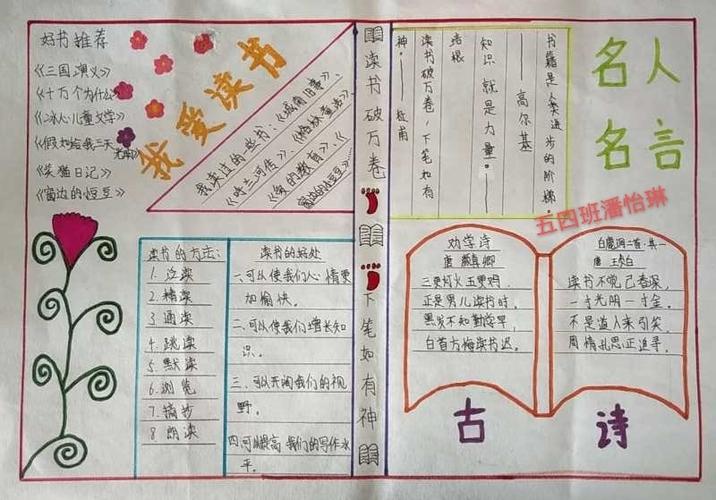 好书推荐
《三国演义》
《十万个为什么》
《冰心儿童文学》
《假如给我三天
光明》
《笑猫日记》
《窗边的小豆豆》
我爱读书
我读过的些书：《城南旧事》、
《呼兰河传》、《格林童话》、
《爱的教育》、
《窗边的小豆豆》
读书的方法：
1.泛读
2.精读
3.通读
4.跳读
5.默读
6.浏览
7.摘抄
8.朗读
读书的好处
一.可以使我们心情更
加愉快。
二.可以使我们增长知
识。
三、可以开阔我们的视
野。
四.可以提高我们的写作水
平。
读书破万卷
下笔如有神
名人
名言
书籍是人类进步的阶梯。
——高尔基
知识就是力量。——
培根
读书破万卷，下笔如有
神——杜甫
五四班潘怡琳
劝学诗
唐 颜真卿
三更灯火五更鸡，
正是男儿读书时，
黑发不知勤学早，
白首方悔读书迟。
白鹿洞二首·其一
唐 王贞白
读书不觉已春深，
一寸光阴一寸金。
不是道人来引笑，
周情孔思正追寻。
古诗